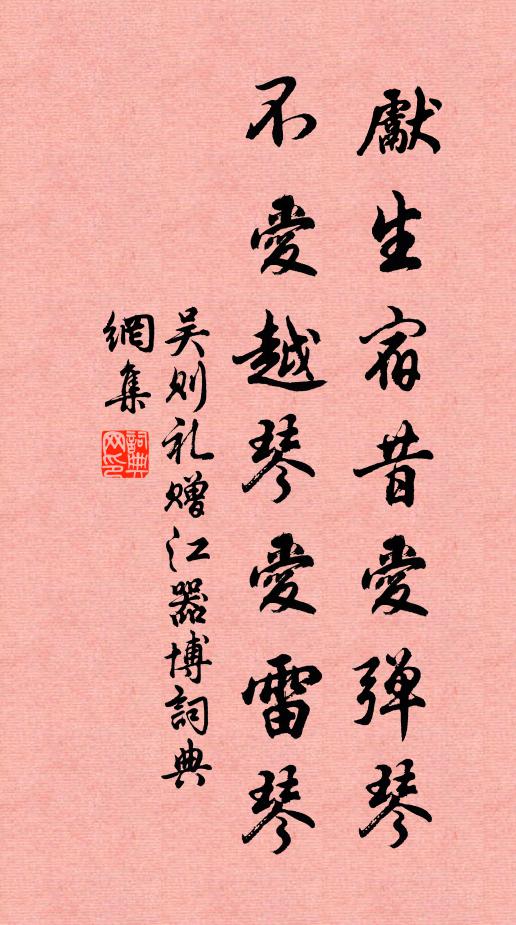 獻生宿昔愛弹琴
不愛越琴愛雷琴
吴则礼赠江器博詞典
網集
詞典网印